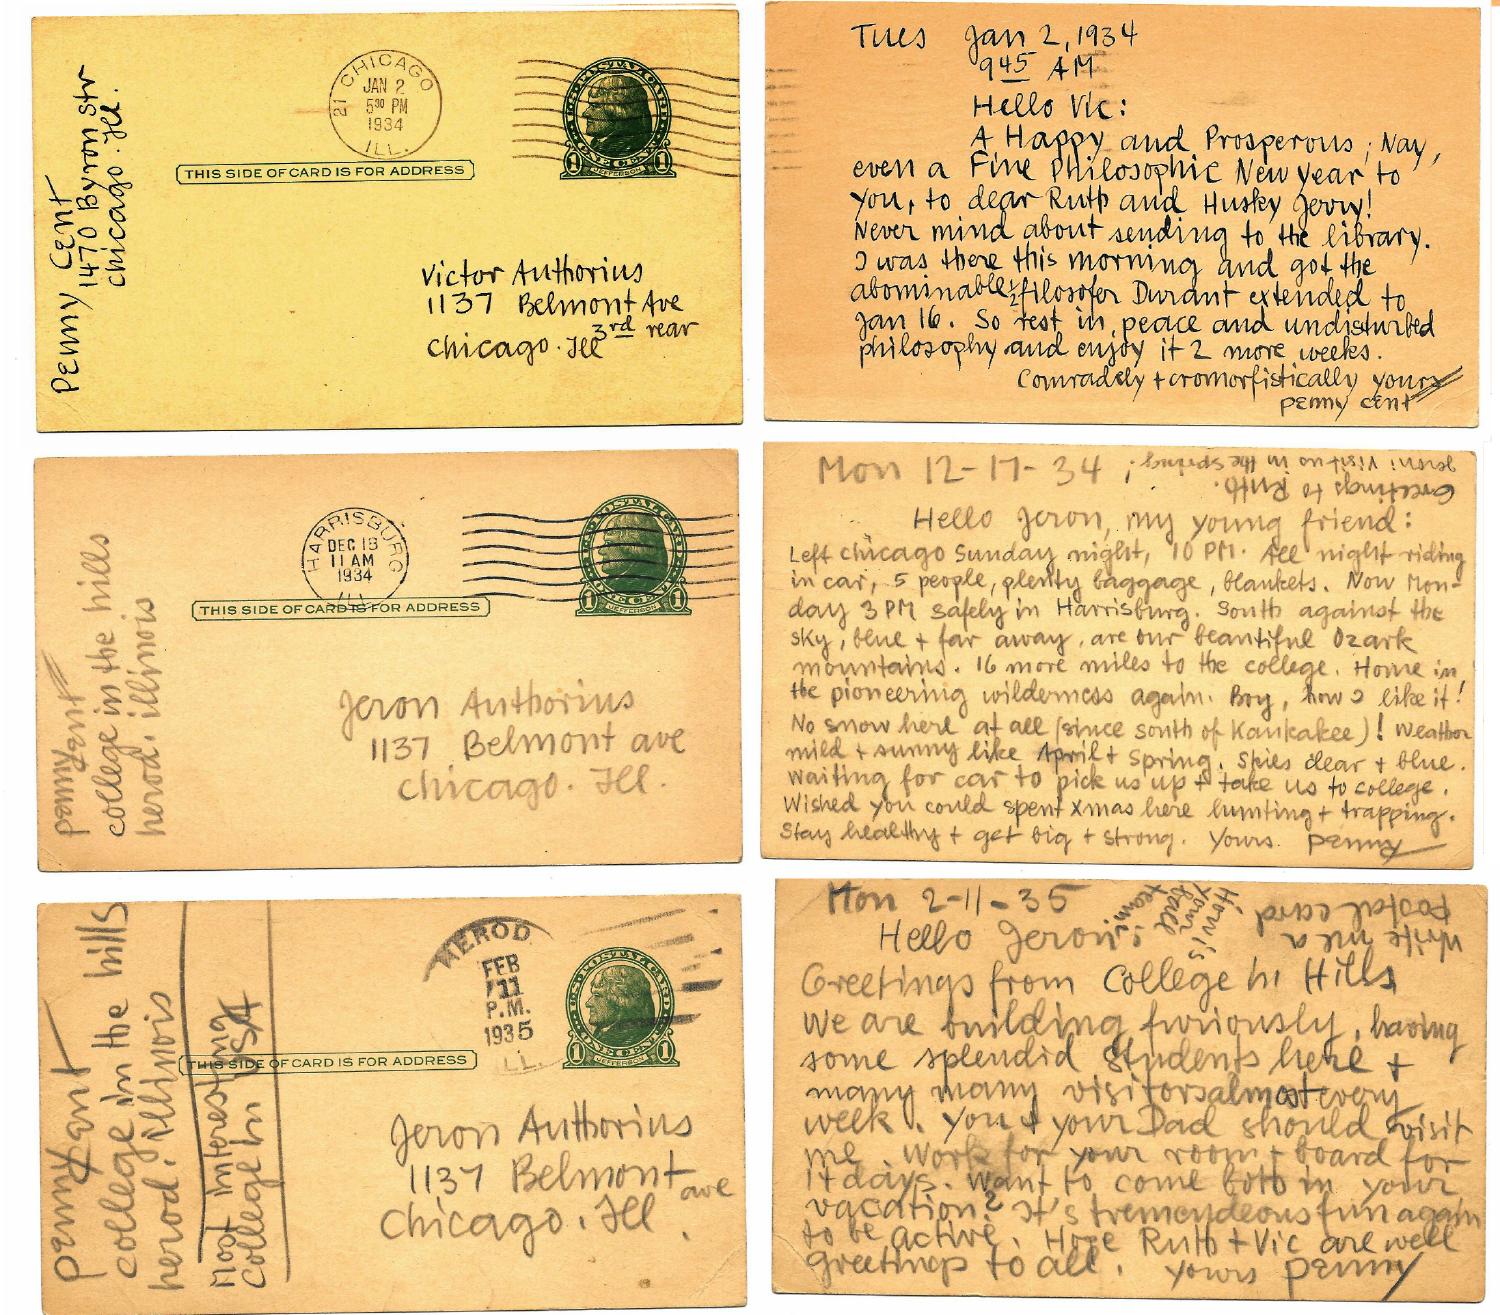 Penny Cent
1470 Byron Str
Chicago. Ill.
21 CHICAGO
JAN 2
5 30 PM
1934
ILL.
THIS SIDE OF CARD IS FOR ADDRESS
U.S. POSTAL CARD
1 ONE CENT 1
JEFFERSON
Victor Authorius
1137 Belmont Ave
3rd rear
Chicago. Ill
Tues Jan 2, 1934
9 45 AM
Hello Vic:
A Happy and Prosperous, Nay,
even a Fine Philosophic New Year to
you, to dear Ruth and Husky Jerry!
Never mind about sending to the library.
I was there this morning and got the
abominable 1/2 filosofer Durant extended to
Jan 16. So rest in peace and undisturbed
philosophy and enjoy it 2 more weeks.
Comradely + cromorfistically yours
Penny Cent
Penny Cent
college in the hills
herod. illinois
HARRISBURG
DEC 18
11 AM
1934
ILL.
THIS SIDE OF CARD IS FOR ADDRESS
U.S. POSTAL CARD
1 ONE CENT 1
JEFFERSON
Jeron Authorius
1137 Belmont ave
Chicago. Ill.
Mon 12-17-34
Greetings to Ruth.
Jeron: Visit us in the Spring;
Hello Jeron, my young friend:
Left Chicago Sunday night, 10 PM. All night riding
in car, 5 people, plenty baggage, blankets. Now Mon-
day 3 PM safely in Harrisburg. South against the
sky, blue + far away, are our beautiful Ozark
mountains. 16 more miles to the college. Home in
the pioneering wilderness again. Boy, how I like it!
No snow here at all (since south of Kankakee)! Weather
mild + sunny like April + Spring. Skies clear + blue.
Waiting for car to pick us up + take us to college.
Wished you could spent xmas here hunting + trapping.
Stay healthy + get big + strong. Yours. Penny
Penny Cent
college in the hills
herod. illinois
Most interesting
College in USA
HEROD
FEB
11
P.M.
1935
ILL.
THIS SIDE OF CARD IS FOR ADDRESS
U.S. POSTAL CARD
1 ONE CENT 1
JEFFERSON
Jeron Authorius
1137 Belmont ave
Chicago. Ill.
Mon 2-11-35
How is
your
ball
team?
Write me a
Postal card
Hello Jeron:
Greetings from College in Hills
We are building furiously, having
some splendid students here +
many many visitors almost every
week. You + your Dad should visit
me. Work for your room + board for
14 days. Want to come both in your
vacation? It's tremendeous fun again
to be active. Hope Ruth + Vic are well
Greetings to all. Yours Penny